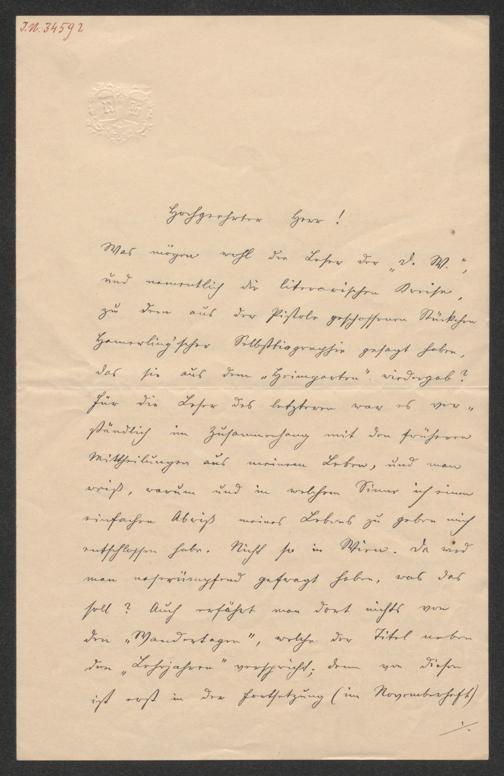 J.N. 34592
Hochgeehrter Herr!
Was mögen wohl die Leser der „D. W.",
und namentlich die literarischen Kreise,
zu dem aus der Pistole geschossenen Stückchen
Hamerling'scher Selbstbiographie gesagt haben,
das sie aus dem „Heimgarten" wiedergab?
Für die Leser des letzteren war es ver-
ständlich im Zusammenhang mit den früheren
Mittheilungen aus meinem Leben, und man
weiß, warum und in welchem Sinne ich einen
einfachen Abriß meines Lebens zu geben mich
entschlossen habe. Nicht so in Wien. Da wird
man naserümpfend gefragt haben, was das
soll? Auch erfährt man dort nichts von
den „Wandertagen", welche der Titel neben
den „Lehrjahren" verspricht; denn von diesen
ist erst in der Fortsetzung (im Novemberheft)
./.